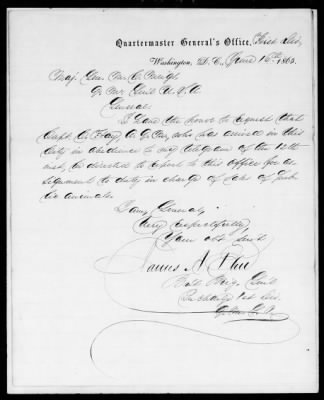 Quartermaster General's Office, First Div,
Washington, D. C., June 16th 1865.
Maj. Gen. M. C. Meigs
Qr Mr Genl U.S.A.
General:
I have the honor to request that
Capt. C. Fray A.Q.M., who has arrived in this
City in obedience to my telegram of the 12th
inst, be directed to report to this office for as-
signment to duty in charge of sale of Pub-
lic animals.
I am, General,
Very respectfully
Your obt Servt
James A. Ekin
Bvt Brig. Genl
In charge 1st Div.
Q.M.G.O.